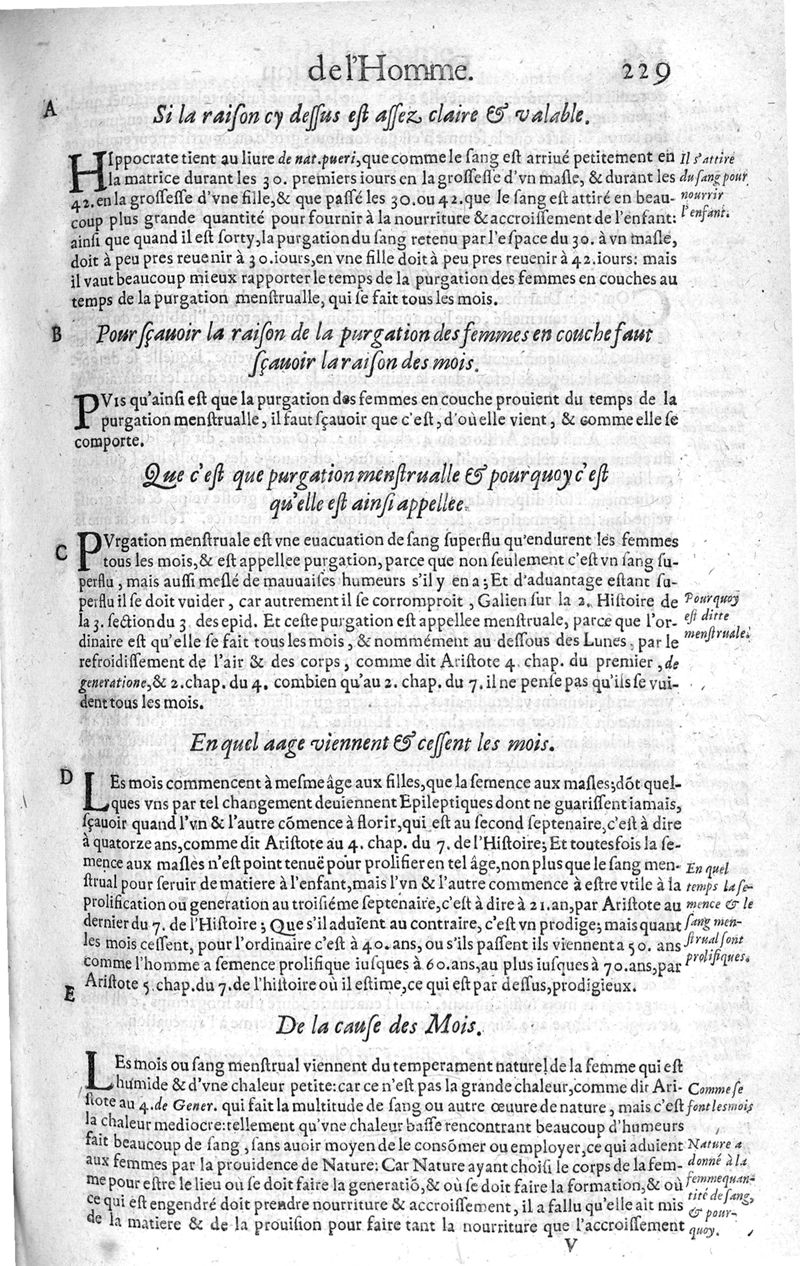 de l'Homme. 229
A
Si la raiſon cy deſſus eſt aſſez claire & valable.
HIppocrate tient au liure de nat. pueri, que comme le ſang eſt arriué petitement en
la matrice durant les 30. premiers iours en la groſſeſſe d'vn maſle, & durant les
42. en la groſſeſſe d'vne fille, & que paſſé les 30. ou 42. que le ſang eſt attiré en beau-
coup plus grande quantité pour fournir à la nourriture & accroiſſement de l'enfant:
ainſi que quand il eſt ſorty, la purgation du ſang retenu par l'eſpace du 30. à vn maſle,
doit à peu pres reuenir à 30. iours, en vne fille doit à peu pres reuenir à 42. iours: mais
il vaut beaucoup mieux rapporter le temps de la purgation des femmes en couches au
temps de la purgation menſtrualle, qui ſe fait tous les mois.
Il s'attire
du ſang pour
nourrir
l'enfant.
B
Pour ſçauoir la raiſon de la purgation des femmes en couche faut
ſçauoir la raiſon des mois.
PVis qu'ainſi eſt que la purgation des femmes en couche prouient du temps de la
purgation menſtrualle, il faut ſçauoir que c'eſt, d'où elle vient, & comme elle ſe
comporte.
Que c'eſt que purgation menſtrualle & pourquoy c'eſt
qu'elle eſt ainſi appellee.
C
PVrgation menſtruale eſt vne euacuation de ſang ſuperflu qu'endurent les femmes
tous les mois, & eſt appellee purgation, parce que non ſeulement c'eſt vn ſang ſu-
perflu, mais auſſi meſlé de mauuaiſes humeurs s'il y en a; Et d'aduantage eſtant ſu-
perflu il ſe doit vuider, car autrement il ſe corromproit, Galien ſur la 2. Hiſtoire de
la 3. ſection du 3. des epid. Et ceſte purgation eſt appellee menſtruale, parce que l'or-
dinaire eſt qu'elle ſe fait tous les mois, & nommément au deſſous des Lunes, par le
refroidiſſement de l'air & des corps, comme dit Ariſtote 4. chap. du premier, de
generatione, & 2. chap. du 4. combien qu'au 2. chap. du 7. il ne penſe pas qu'ils ſe vui-
dent tous les mois.
Pourquoy
eſt ditte
menſtruale.
En quel aage viennent & ceſſent les mois.
D
LEs mois commencent à meſme âge aux filles, que la ſemence aux maſles; dõt quel-
ques vns par tel changement deuiennent Epileptiques dont ne guariſſent iamais,
ſçauoir quand l'vn & l'autre cõmence à florir, qui eſt au ſecond ſeptenaire, c'eſt à dire
à quatorze ans, comme dit Ariſtote au 4. chap. du 7. de l'Hiſtoire; Et toutesfois la ſe-
mence aux maſles n'eſt point tenuë pour prolifier en tel âge, non plus que le ſang men-
ſtrual pour ſeruir de matiere à l'enfant, mais l'vn & l'autre commence à eſtre vtile à la
prolification ou generation au troiſiéme ſeptenaire, c'eſt à dire à 21. an, par Ariſtote au
dernier du 7. de l'Hiſtoire; Que s'il aduient au contraire, c'eſt vn prodige; mais quant
les mois ceſſent, pour l'ordinaire c'eſt à 40. ans, ou s'ils paſſent ils viennent a 50. ans
comme l'homme a ſemence prolifique iuſques à 60. ans, au plus iuſques à 70. ans, par
Ariſtote 5. chap. du 7. de l'hiſtoire où il eſtime, ce qui eſt par deſſus, prodigieux.
En quel
temps la ſe-
mence & le
ſang men-
ſtrual ſont
prolifiques.
E
De la cauſe des Mois.
LEs mois ou ſang menſtrual viennent du temperament naturel de la femme qui eſt
humide & d'vne chaleur petite: car ce n'eſt pas la grande chaleur, comme dit Ari-
ſtote au 4. de Gener. qui fait la multitude de ſang ou autre œuure de nature, mais c'eſt
la chaleur mediocre: tellement qu'vne chaleur baſſe rencontrant beaucoup d'humeurs
fait beaucoup de ſang, ſans auoir moyen de le conſõmer ou employer, ce qui aduient
aux femmes par la prouidence de Nature: Car Nature ayant choiſi le corps de la fem-
me pour eſtre le lieu où ſe doit faire la generatiõ, & où ſe doit faire la formation, & où
ce qui eſt engendré doit prendre nourriture & accroiſſement, il a fallu qu'elle ait mis
de la matiere & de la prouiſion pour faire tant la nourriture que l'accroiſſement
Comme ſe
font les mois
Nature a
donné à la
femme quan-
tité de ſang,
& pour-
quoy.
V